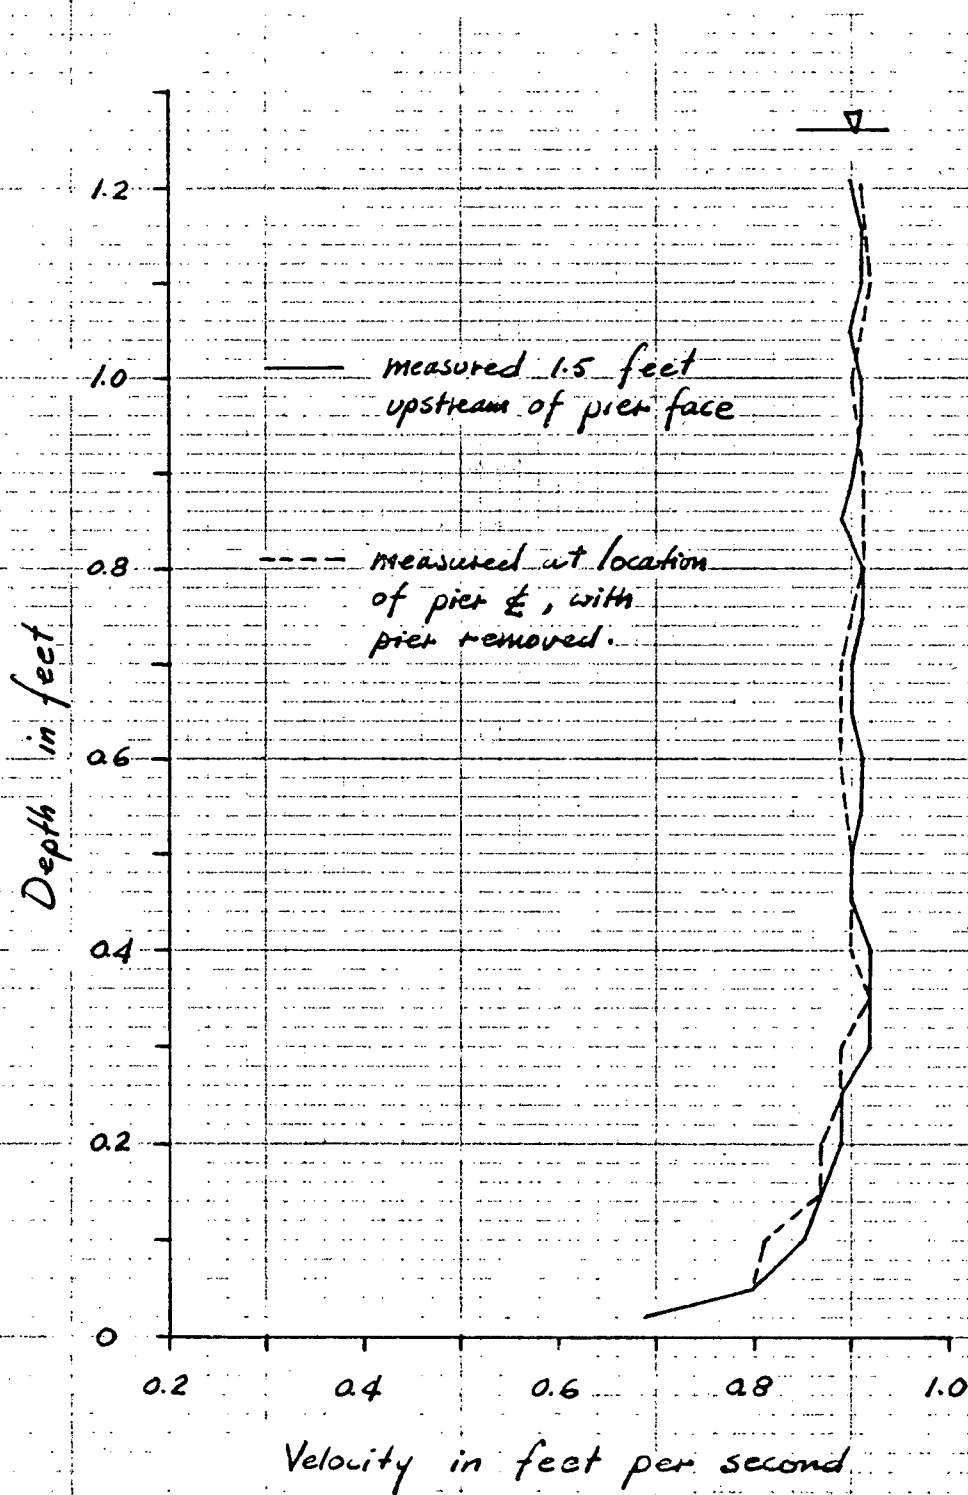 1.2
1.0
0.8
0.6
0.4
0.2
0
Depth in feet
measured 1.5 feet
upstream of pier face
measured at location
of pier ℄, with
pier removed.
0.2 0.4 0.6 0.8 1.0
Velocity in feet per second